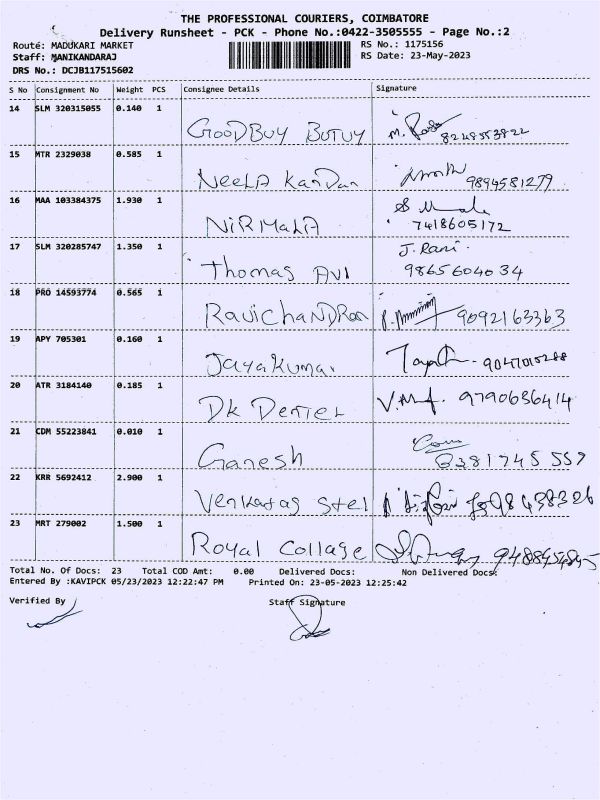 THE PROFESSIONAL COURIERS, COIMBATORE
Delivery Runsheet - PCK - Phone No.:0422-3505555 - Page No.:2
Route: MADUKARI MARKET
RS No.: 1175156
Staff: MANIKANDARAJ
RS Date: 23-May-2023
DRS No.: DCJB117515602
S No Consignment No Weight PCS Consignee Details Signature
14 SLM 320315055 0.140 1
GOODBUY BUTUY 8248553822
15 MTR 2329038 0.585 1
NeeLA KanDan 9894581279
16 MAA 103384375 1.930 1
NiRMaLA 7418605172
17 SLM 320285747 1.350 1 J. Rani.
Thomas AVI 9865604034
18 PRO 14593774 0.565 1
RaviChaNDRan 9092163363
19 APY 705301 0.160 1
Jayakumar 9047015288
20 ATR 3184140 0.185 1
DK Denter 9790636414
21 CDM 55223841 0.010 1
Ganesh 8381745 559
22 KRR 5692412 2.900 1
Venkatas Stel
23 MRT 279002 1.500 1
Royal Collage
Total No. Of Docs: 23 Total COD Amt: 0.00 Delivered Docs: Non Delivered Docs:
Entered By :KAVIPCK 05/23/2023 12:22:47 PM Printed On: 23-05-2023 12:25:42
Verified By Staff Signature